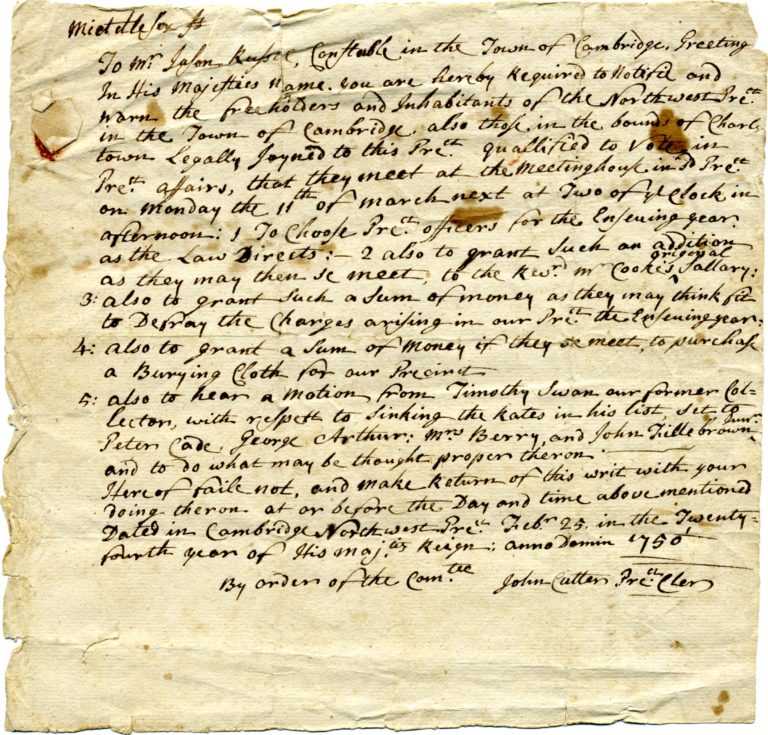 Middlesex ss
To Mr Jason Russel, Constable in the Town of Cambridge, Greeting
In His Majesties name. you are hereby Required to Notifie and
warn the freeholders and Inhabitants of the Northwest Prect.
in the Town of Cambridge, also those in the bounds of Charls
town Legally Joyned to this Prect. quallified to Vote in
Prect. affairs, that they meet at the Meetinghouse in sd Prect
on Monday the 11th of march next at Two of ye Clock in
afternoon: 1 To Choose Prect officers for the Ensueing year
as the Law Directs: - 2 also to grant Such an addition
as they may then se meet, to the Revd. mr Cooke's ^ origenal Sallary:
3: also to grant Such a Sum of money as they may think fit
to Defray the Charges arising in our Prect. the Ensueing year:
4: also to grant a Sum of Money if they se meet, to purchase
a Burying Cloth for our Precinct
5: also to hear a Motion from Timothy Swan our former Col-
lector, with respett to Sinking the Rates in his list, set to
Peter Cade, George Arthur: Mrs Berry, and John Killebrown Junr.
and to do what may be thought proper theron.
Hereof faile not, and make Return of this writ with your
doing theron at or before the Day and time above mentioned
Dated in Cambridge Northwest Prect. Febr 25. in the Twenty-
fourth year of His Maj.ties Reign; anno Domin 1750
By order of the Comtee John Cutter Prect. Cler